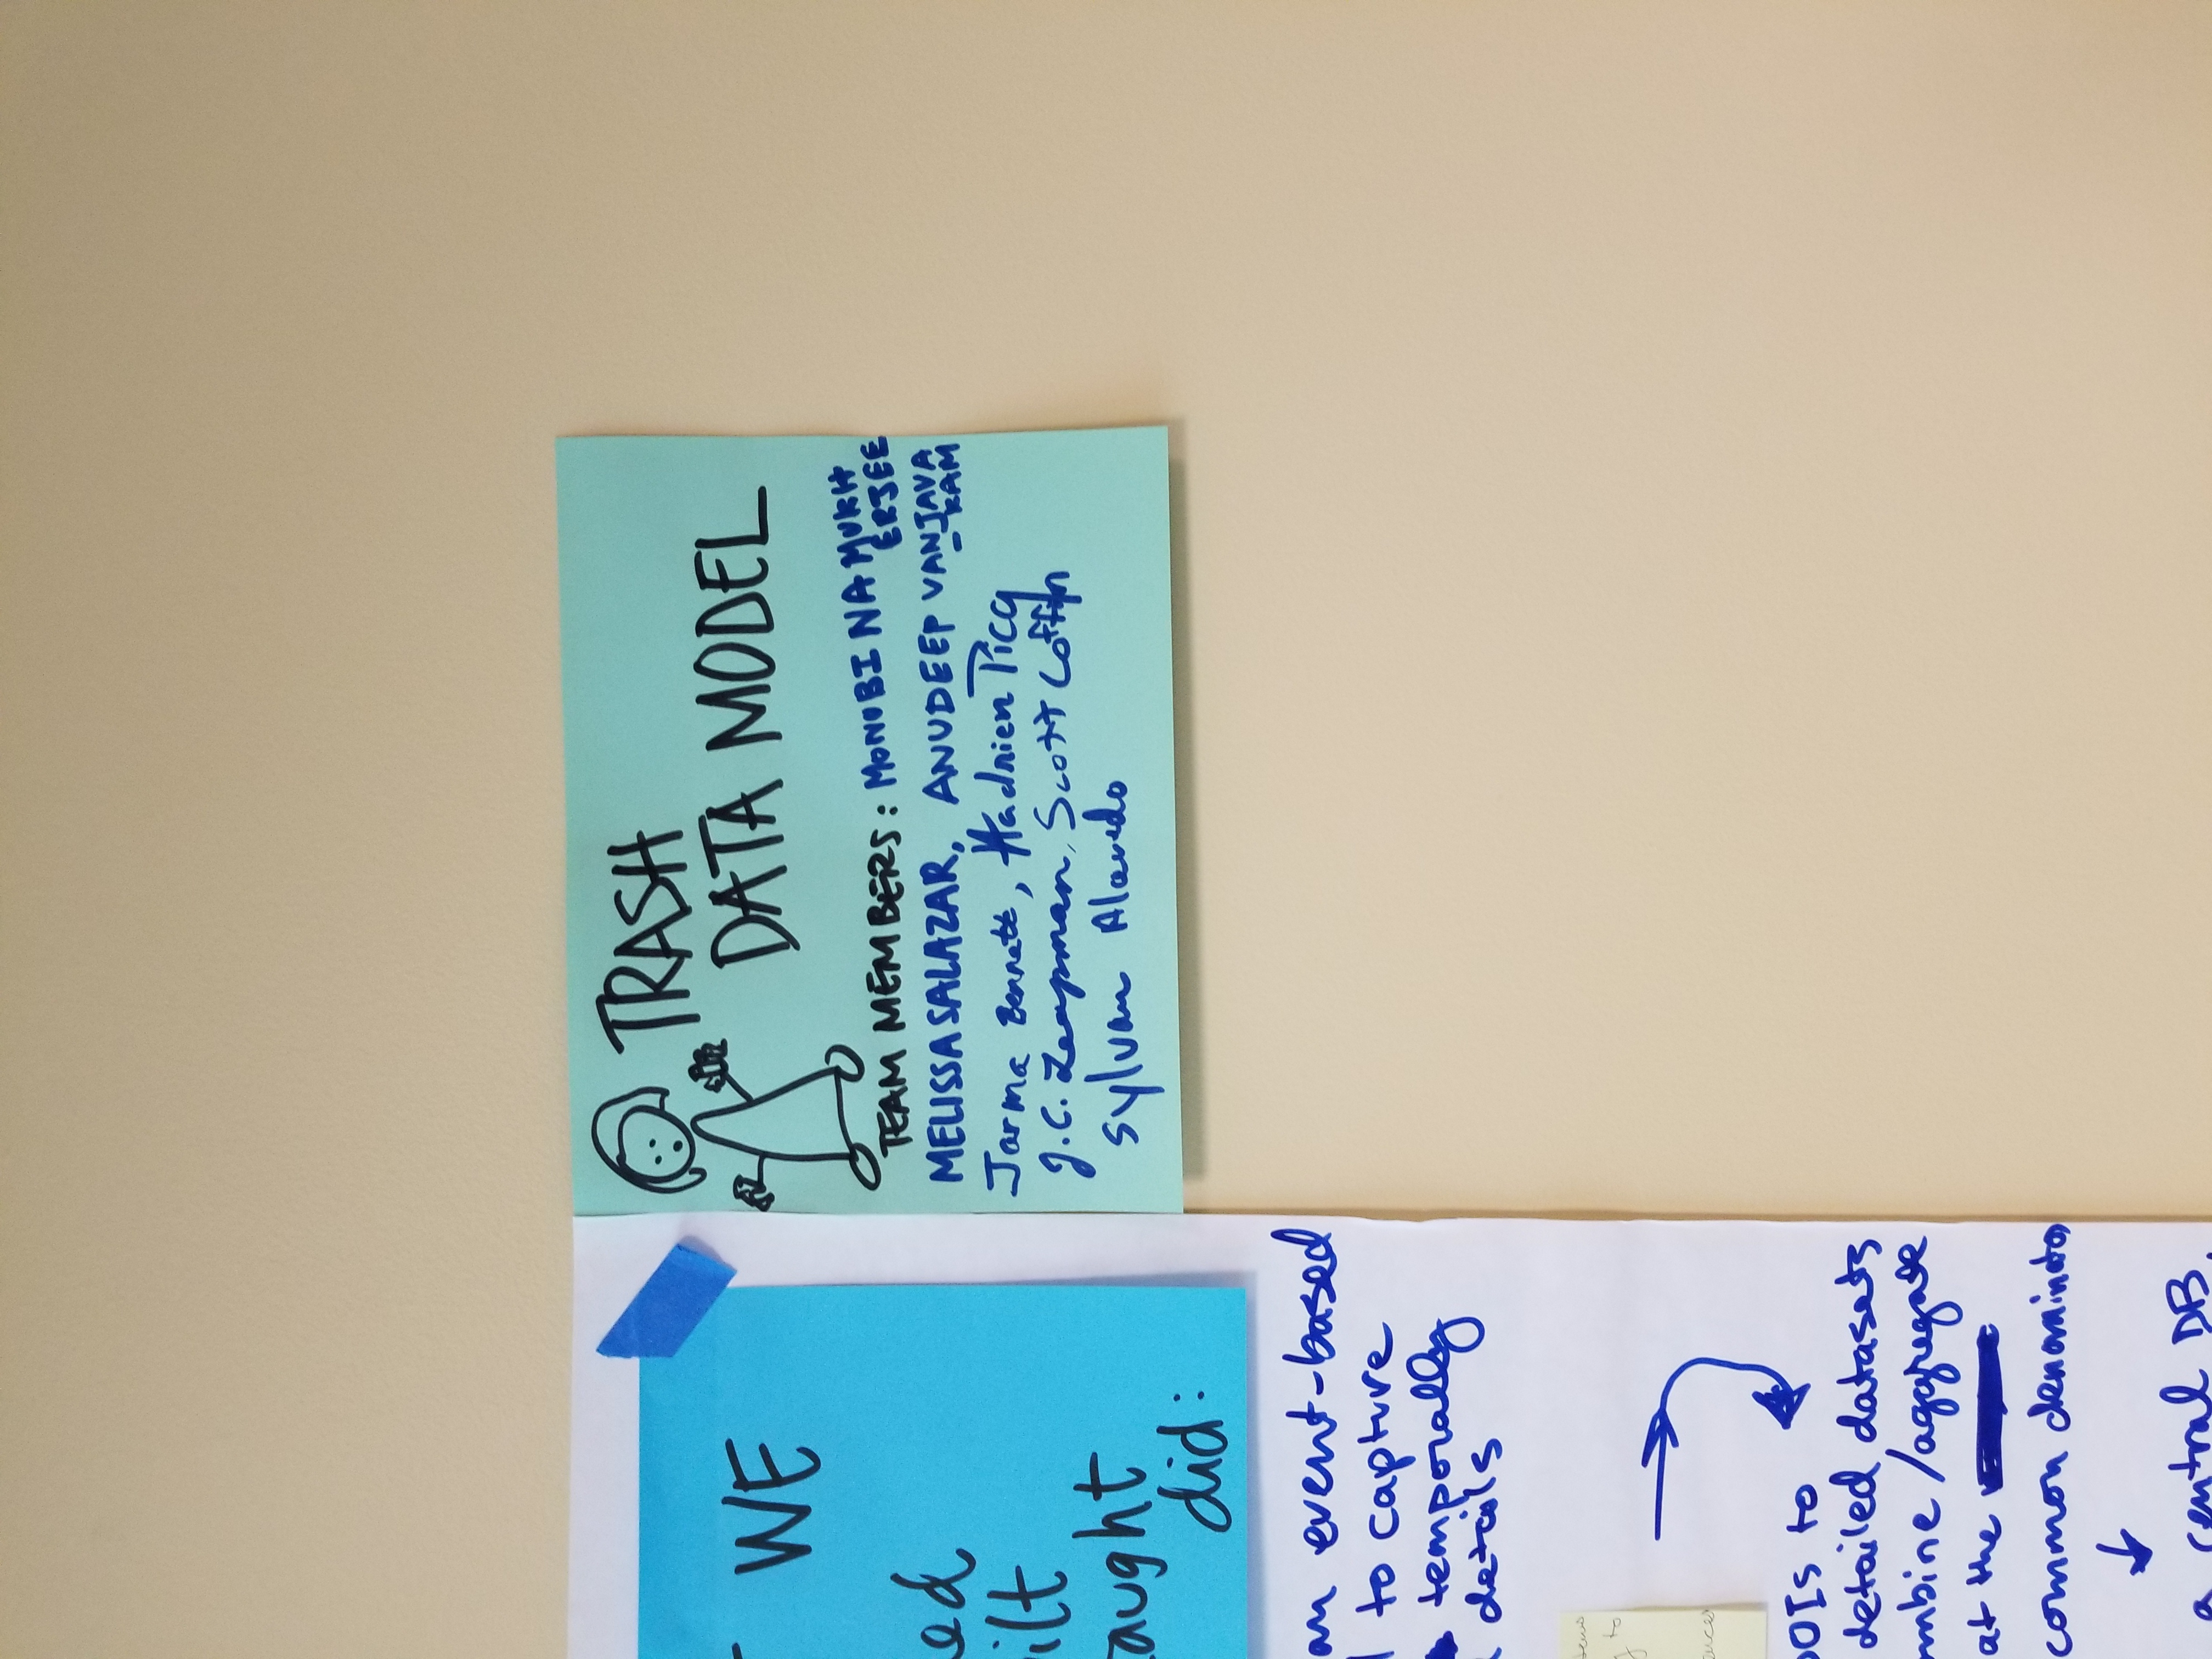 WE
did:
an event-based
to capture
temporally
details
to
OIs to
detailed datasets
/aggregate
at the
common denominator
a central DB.
TRASH
DATA MODEL
TEAM MEMBERS: MONOBINA MUKH
ERJEE
MELISSA SALAZAR, ANUDEEP VANJAVA
-KAM
Jarma Bennett, Hadrien Picq
J.C. Leapman, Scott Coffin
Sylvan